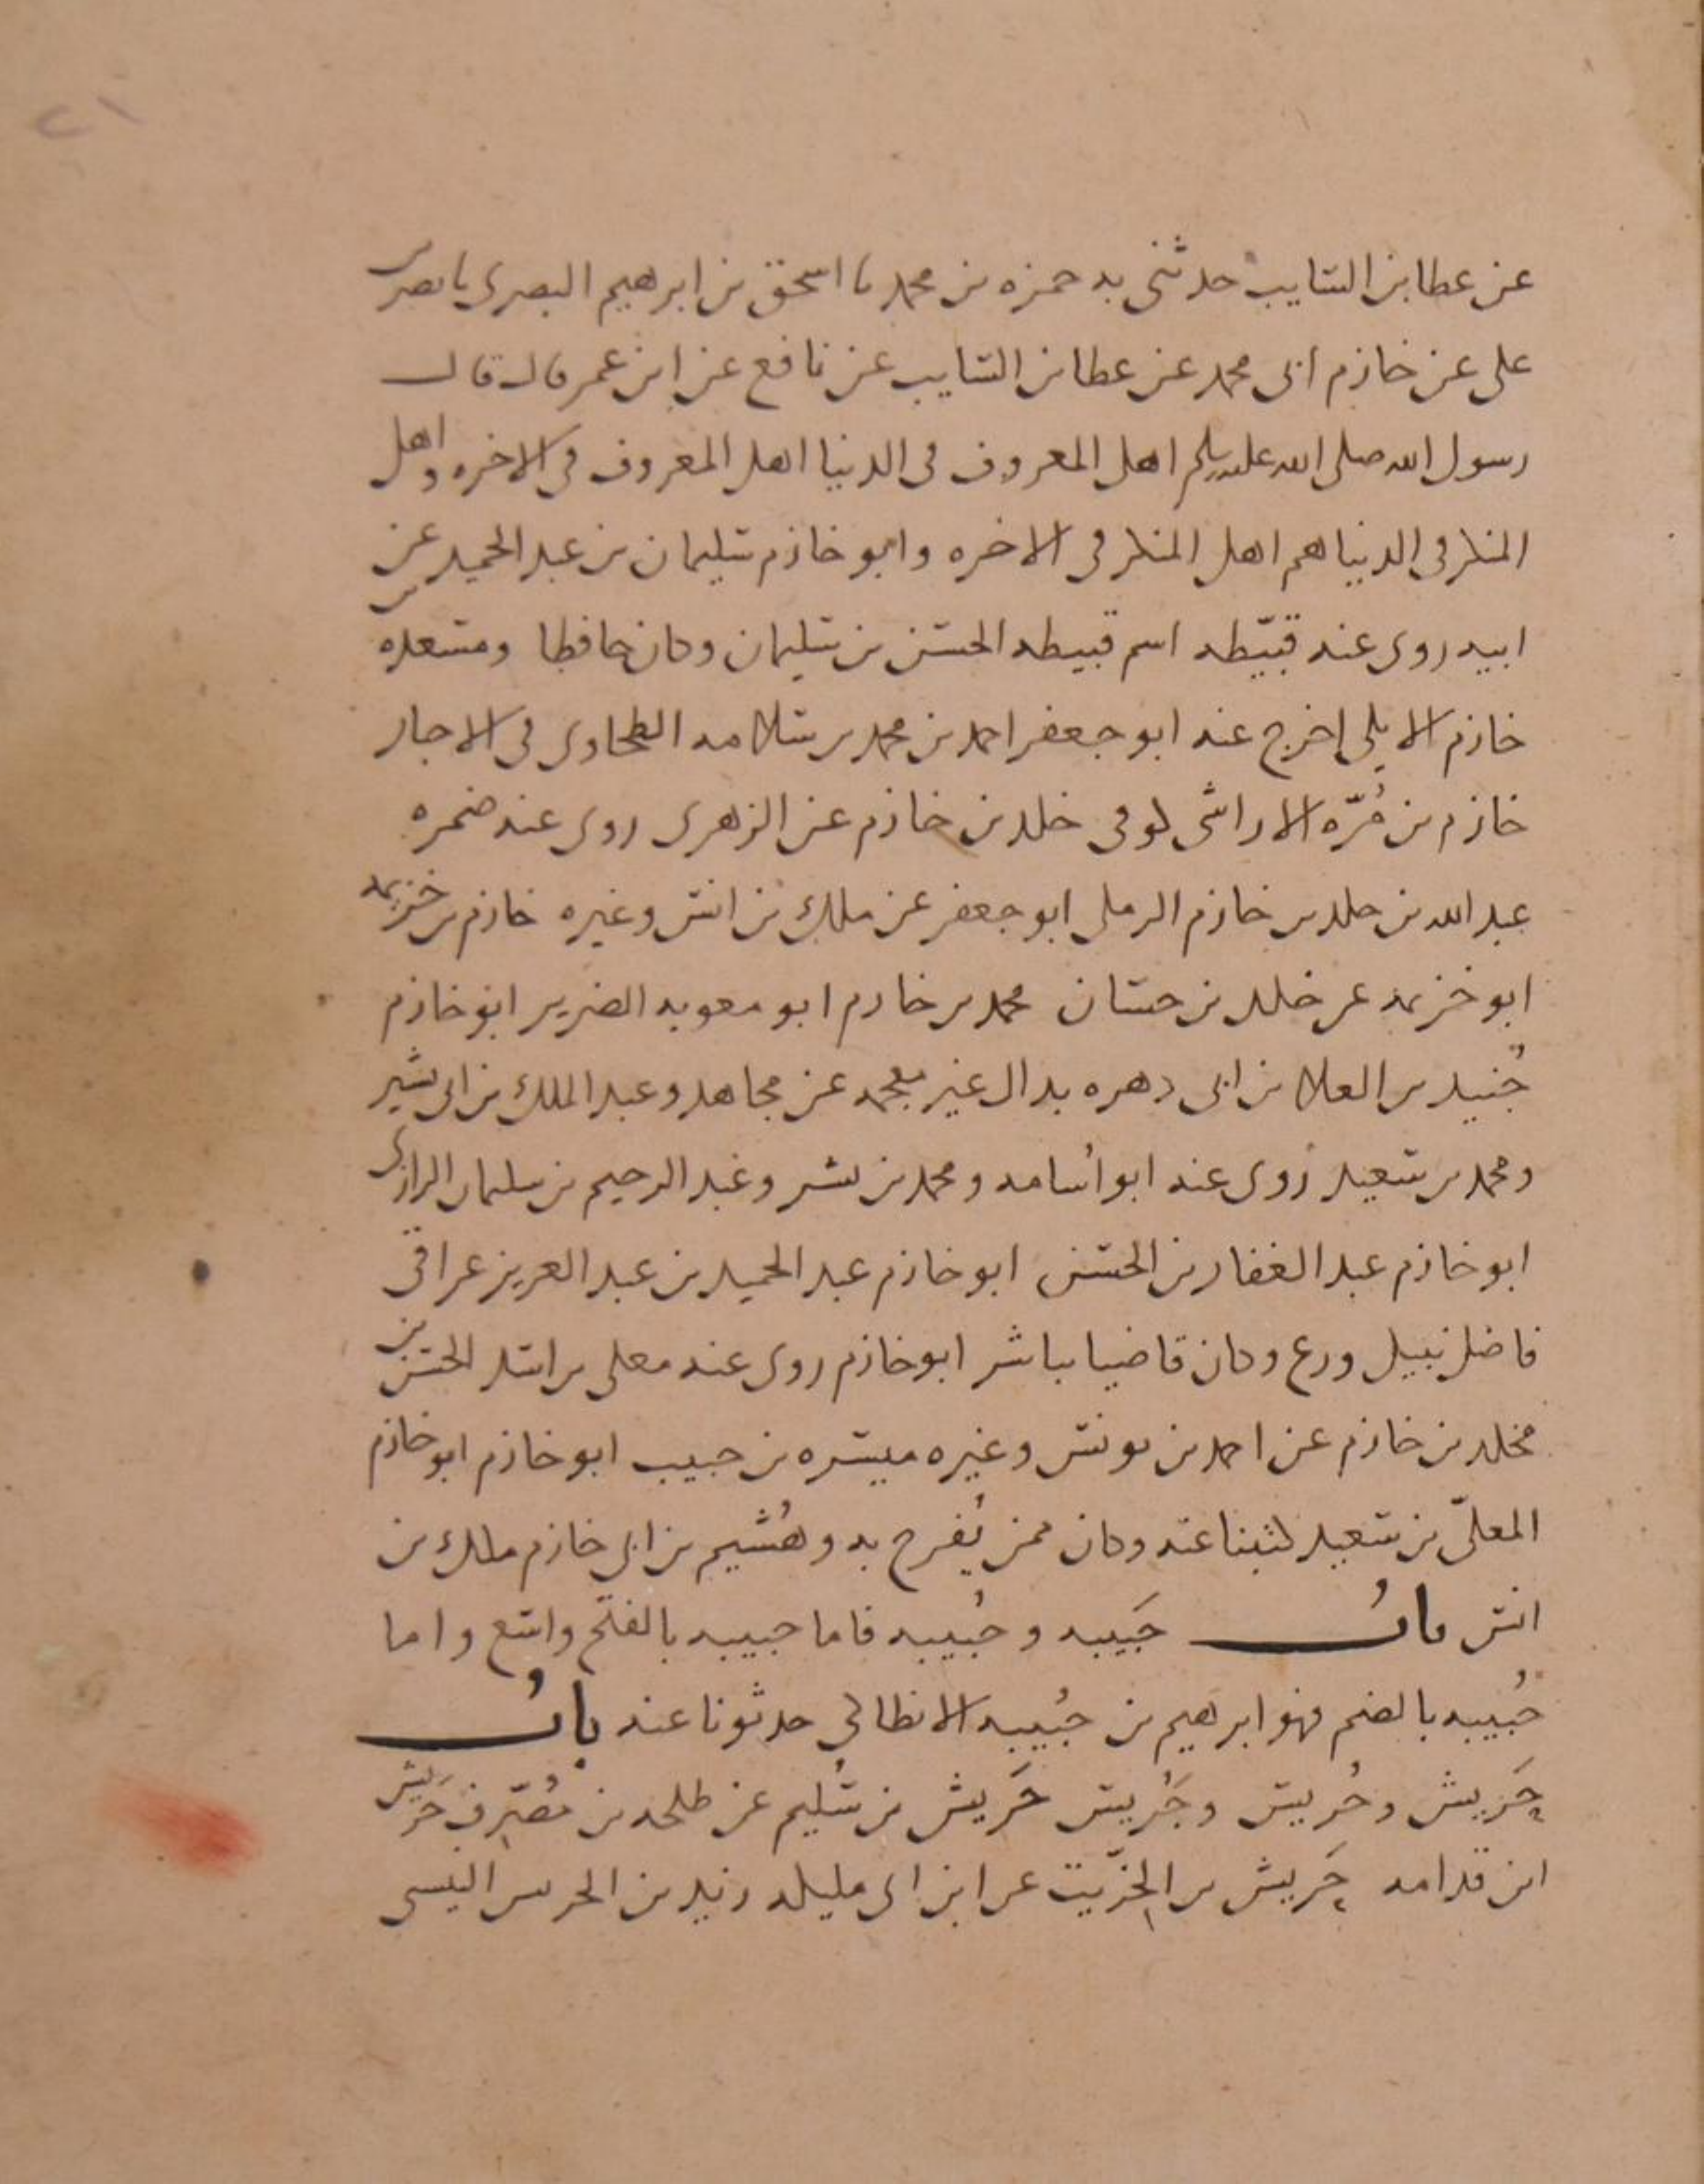 ٢١
عن عطا بن السايب حدثنى به حمزه بن محمد نا اسحق بن ابرهيم البصرى نا نصر بن
على عن خازم ابى محمد عن عطا بن السايب عن نافع عن ابن عمر قال قال
رسول الله صلى الله عليه وسلم اهل المعروف فى الدنيا اهل المعروف فى الاخره واهل
المنكر فى الدنيا هم اهل المنكر فى الاخره وابو خازم سليمان بن عبد الحميد عن
ابيه روى عنه قبيّطه اسم قبيطه الحسن بن سليمان وكان حافظا ومسعده بن
خازم الايلى اخرج عنه ابو جعفر احمد بن محمد بن سلامه الطحاوى فى الاخبار
خازم بن مُرّه الاراشى كوفى خلد بن خازم عن الزهرى روى عنه ضمره
عبد الله بن خلد بن خازم الرملى ابو جعفر عن ملك بن انس وغيره خازم بن خزيمه
ابو خزيمه عن خلد بن حسان محمد بن خازم ابو معويه الضرير ابو خازم
جُنيد بن العلا بن ابى دهره بدال غير معجمه عن مجاهد وعبد الملك بن ابى بشير
ومحمد بن سعيد روى عنه ابو اسامه ومحمد بن بشر وعبد الرحيم بن سليمان الرازى
ابو خازم عبد الغفار بن الحسن ابو خازم عبد الحميد بن عبد العزيز عراقى
فاضل نبيل ورع وكان قاضيا بالشر ابو خازم روى عنه معلى بن اسد الحسن بن
مخلد بن خازم عن احمد بن يونس وغيره ميسره بن حبيب ابو خازم ابو خازم
المعلّى بن سعيد كتبنا عنه وكان ممن يُفرح به وهُشيم بن ابى خازم ملك بن
انس باب حَبيبه وحُبيبه فاما حبيبه بالفتح واسع واما
حُبيبه بالضم فهو ابرهيم بن حُبيبه الانطاكى حدثونا عنه باب
حَريش وحُريس وجَريس حَريش بن سُليم عن طلحه بن مُصَرِّف حَريش
ابن قدامه حَريش بن الخرّيت عن ابن ابى مليكه زيد بن الحريس